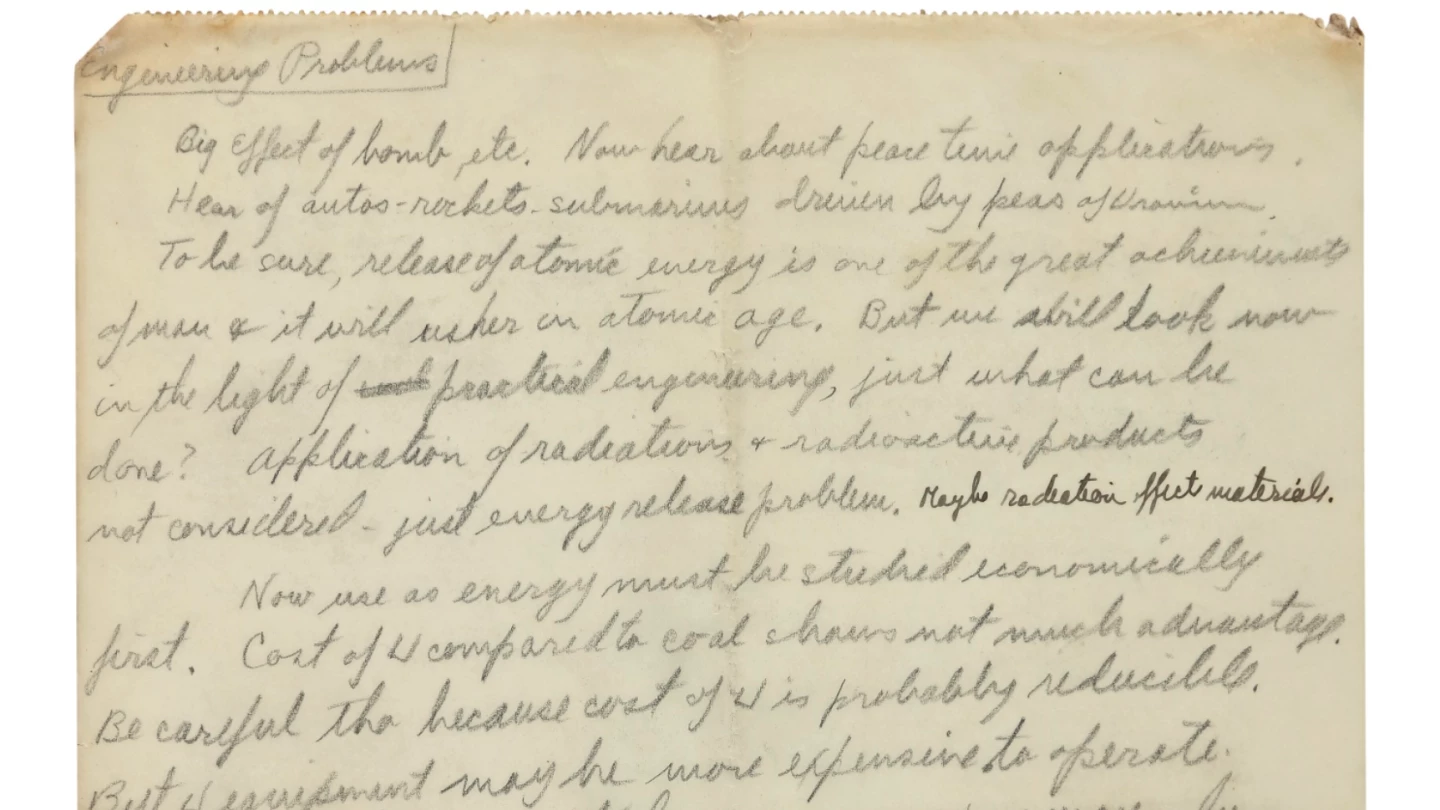 Engineering Problems
Big effect of bomb, etc. Now hear about peace time applications.
Hear of autos-rockets-submarines driven by peas of Uranium.
To be sure, release of atomic energy is one of the great achievements
of man & it will usher in atomic age. But we will look now
in the light of practical engineering, just what can be
done? Application of radiations & radioactive products
not considered - just energy release problem. Maybe radiation effect materials.
Now use as energy must be studied economically
first. Cost of U compared to coal shows not much advantage.
Be careful tho because cost of U is probably reducible.
But U equipment may be more expensive to operate.